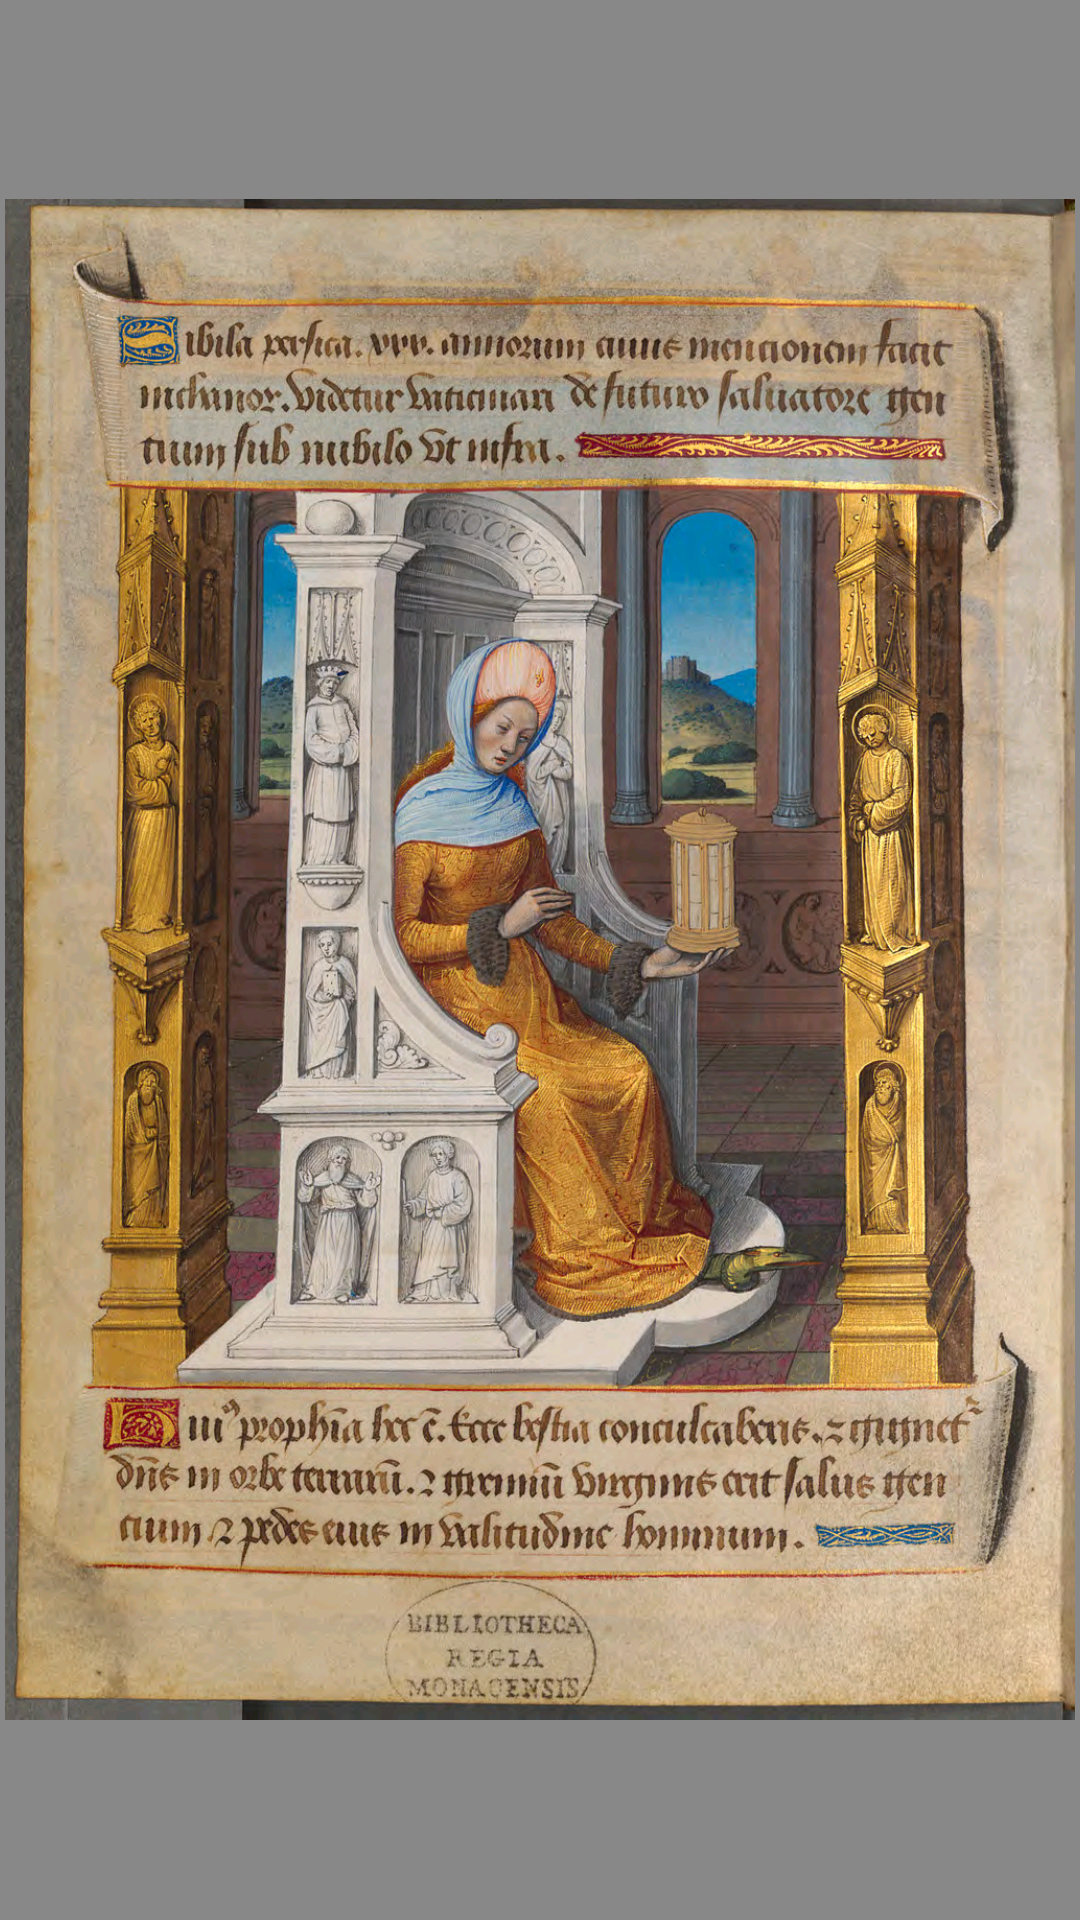 Sibila persica. xxx. annorum cuius mencionem facit
nichanor. Videtur vaticinari de futuro saluatore gen
tium sub nubilo vt infra.
Hui⁹ prophīa hec ē. Ecce bestia conculcaberis. ⁊ gignet᷑
dn̄s in orbe terrarū. ⁊ gremiū virginis erit salus gen
cium ⁊ pedes eius in valitudine hominum.
BIBLIOTHECA
REGIA
MONACENSIS